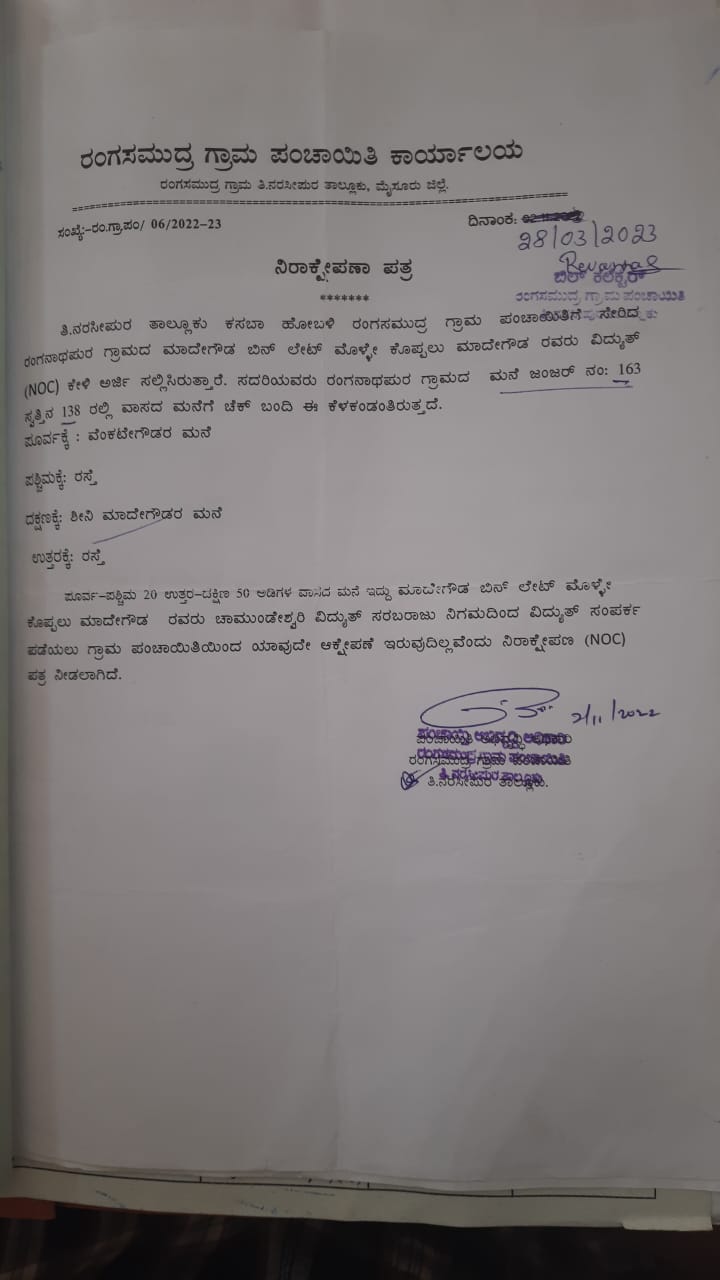 ರಂಗಸಮುದ್ರ ಗ್ರಾಮ ಪಂಚಾಯಿತಿ ಕಾರ್ಯಾಲಯ
ರಂಗಸಮುದ್ರ ಗ್ರಾಮ ತಿ.ನರಸೀಪುರ ತಾಲ್ಲೂಕು, ಮೈಸೂರು ಜಿಲ್ಲೆ.
ಸಂಖ್ಯೆ:-ರಂ.ಗ್ರಾ.ಪಂ/ 06/2022-23 ದಿನಾಂಕ:
28/03/2023
ನಿರಾಕ್ಷೇಪಣಾ ಪತ್ರ
ಬಿಲ್ ಕಲೆಕ್ಟರ್
*******
ರಂಗಸಮುದ್ರ ಗ್ರಾಮ ಪಂಚಾಯಿತಿ
ತಿ.ನರಸೀಪುರ ತಾಲ್ಲೂಕು ಕಸಬಾ ಹೋಬಳಿ ರಂಗಸಮುದ್ರ ಗ್ರಾಮ ಪಂಚಾಯಿತಿಗೆ ಸೇರಿದ
ರಂಗನಾಥಪುರ ಗ್ರಾಮದ ಮಾದೇಗೌಡ ಬಿನ್ ಲೇಟ್ ಮೊಳ್ಳೇ ಕೊಪ್ಪಲು ಮಾದೇಗೌಡ ರವರು ವಿದ್ಯುತ್
(NOC) ಕೇಳಿ ಅರ್ಜಿ ಸಲ್ಲಿಸಿರುತ್ತಾರೆ. ಸದರಿಯವರು ರಂಗನಾಥಪುರ ಗ್ರಾಮದ ಮನೆ ಜಂಜರ್ ನಂ: 163
ಸ್ವತ್ತಿನ 138 ರಲ್ಲಿ ವಾಸದ ಮನೆಗೆ ಚೆಕ್ ಬಂದಿ ಈ ಕೆಳಕಂಡಂತಿರುತ್ತದೆ.
ಪೂರ್ವಕ್ಕೆ : ವೆಂಕಟೇಗೌಡರ ಮನೆ
ಪಶ್ಚಿಮಕ್ಕೆ: ರಸ್ತೆ
ದಕ್ಷಿಣಕ್ಕೆ: ಶೀನಿ ಮಾದೇಗೌಡರ ಮನೆ
ಉತ್ತರಕ್ಕೆ: ರಸ್ತೆ
ಪೂರ್ವ-ಪಶ್ಚಿಮ 20 ಉತ್ತರ-ದಕ್ಷಿಣ 50 ಅಡಿಗಳ ವಾಸದ ಮನೆ ಇದ್ದು ಮಾದೇಗೌಡ ಬಿನ್ ಲೇಟ್ ಮೊಳ್ಳೇ
ಕೊಪ್ಪಲು ಮಾದೇಗೌಡ ರವರು ಚಾಮುಂಡೇಶ್ವರಿ ವಿದ್ಯುತ್ ಸರಬರಾಜು ನಿಗಮದಿಂದ ವಿದ್ಯುತ್ ಸಂಪರ್ಕ
ಪಡೆಯಲು ಗ್ರಾಮ ಪಂಚಾಯಿತಿಯಿಂದ ಯಾವುದೇ ಆಕ್ಷೇಪಣೆ ಇರುವುದಿಲ್ಲವೆಂದು ನಿರಾಕ್ಷೇಪಣ (NOC)
ಪತ್ರ ನೀಡಲಾಗಿದೆ.
2/11/2022
ಪಂಚಾಯಿತಿ ಅಭಿವೃದ್ಧಿ ಅಧಿಕಾರಿ
ರಂಗಸಮುದ್ರ ಗ್ರಾಮ ಪಂಚಾಯಿತಿ
ತಿ.ನರಸೀಪುರ ತಾಲ್ಲೂಕು.